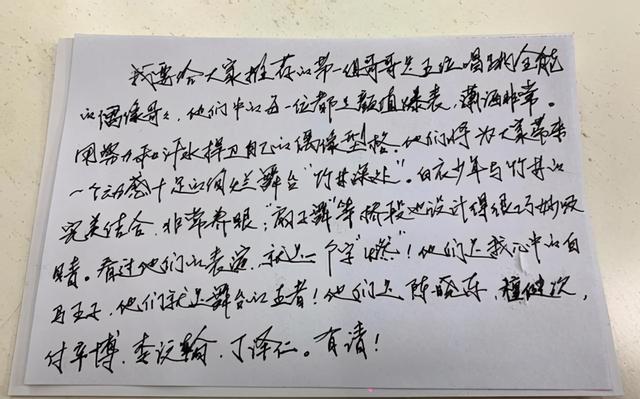 我要给大家推荐的第一组哥哥是五位唱跳全能
的偶像哥哥,他们中的每一位都是颜值爆表,潇洒非常。
用努力和汗水捍卫自己的偶像型格。他们将为大家带来
一个动感十足的绚烂舞台“竹林深处”。白衣少年与竹林的
完美结合,非常养眼;“扇子舞”等桥段也设计得很巧妙吸
睛。看过他们的表演,就是一个字“燃”!他们是我心中的白
马王子,他们就是舞台的王者!他们是 陈晓东,檀健次,
付辛博,李汶翰,丁泽仁。有请!